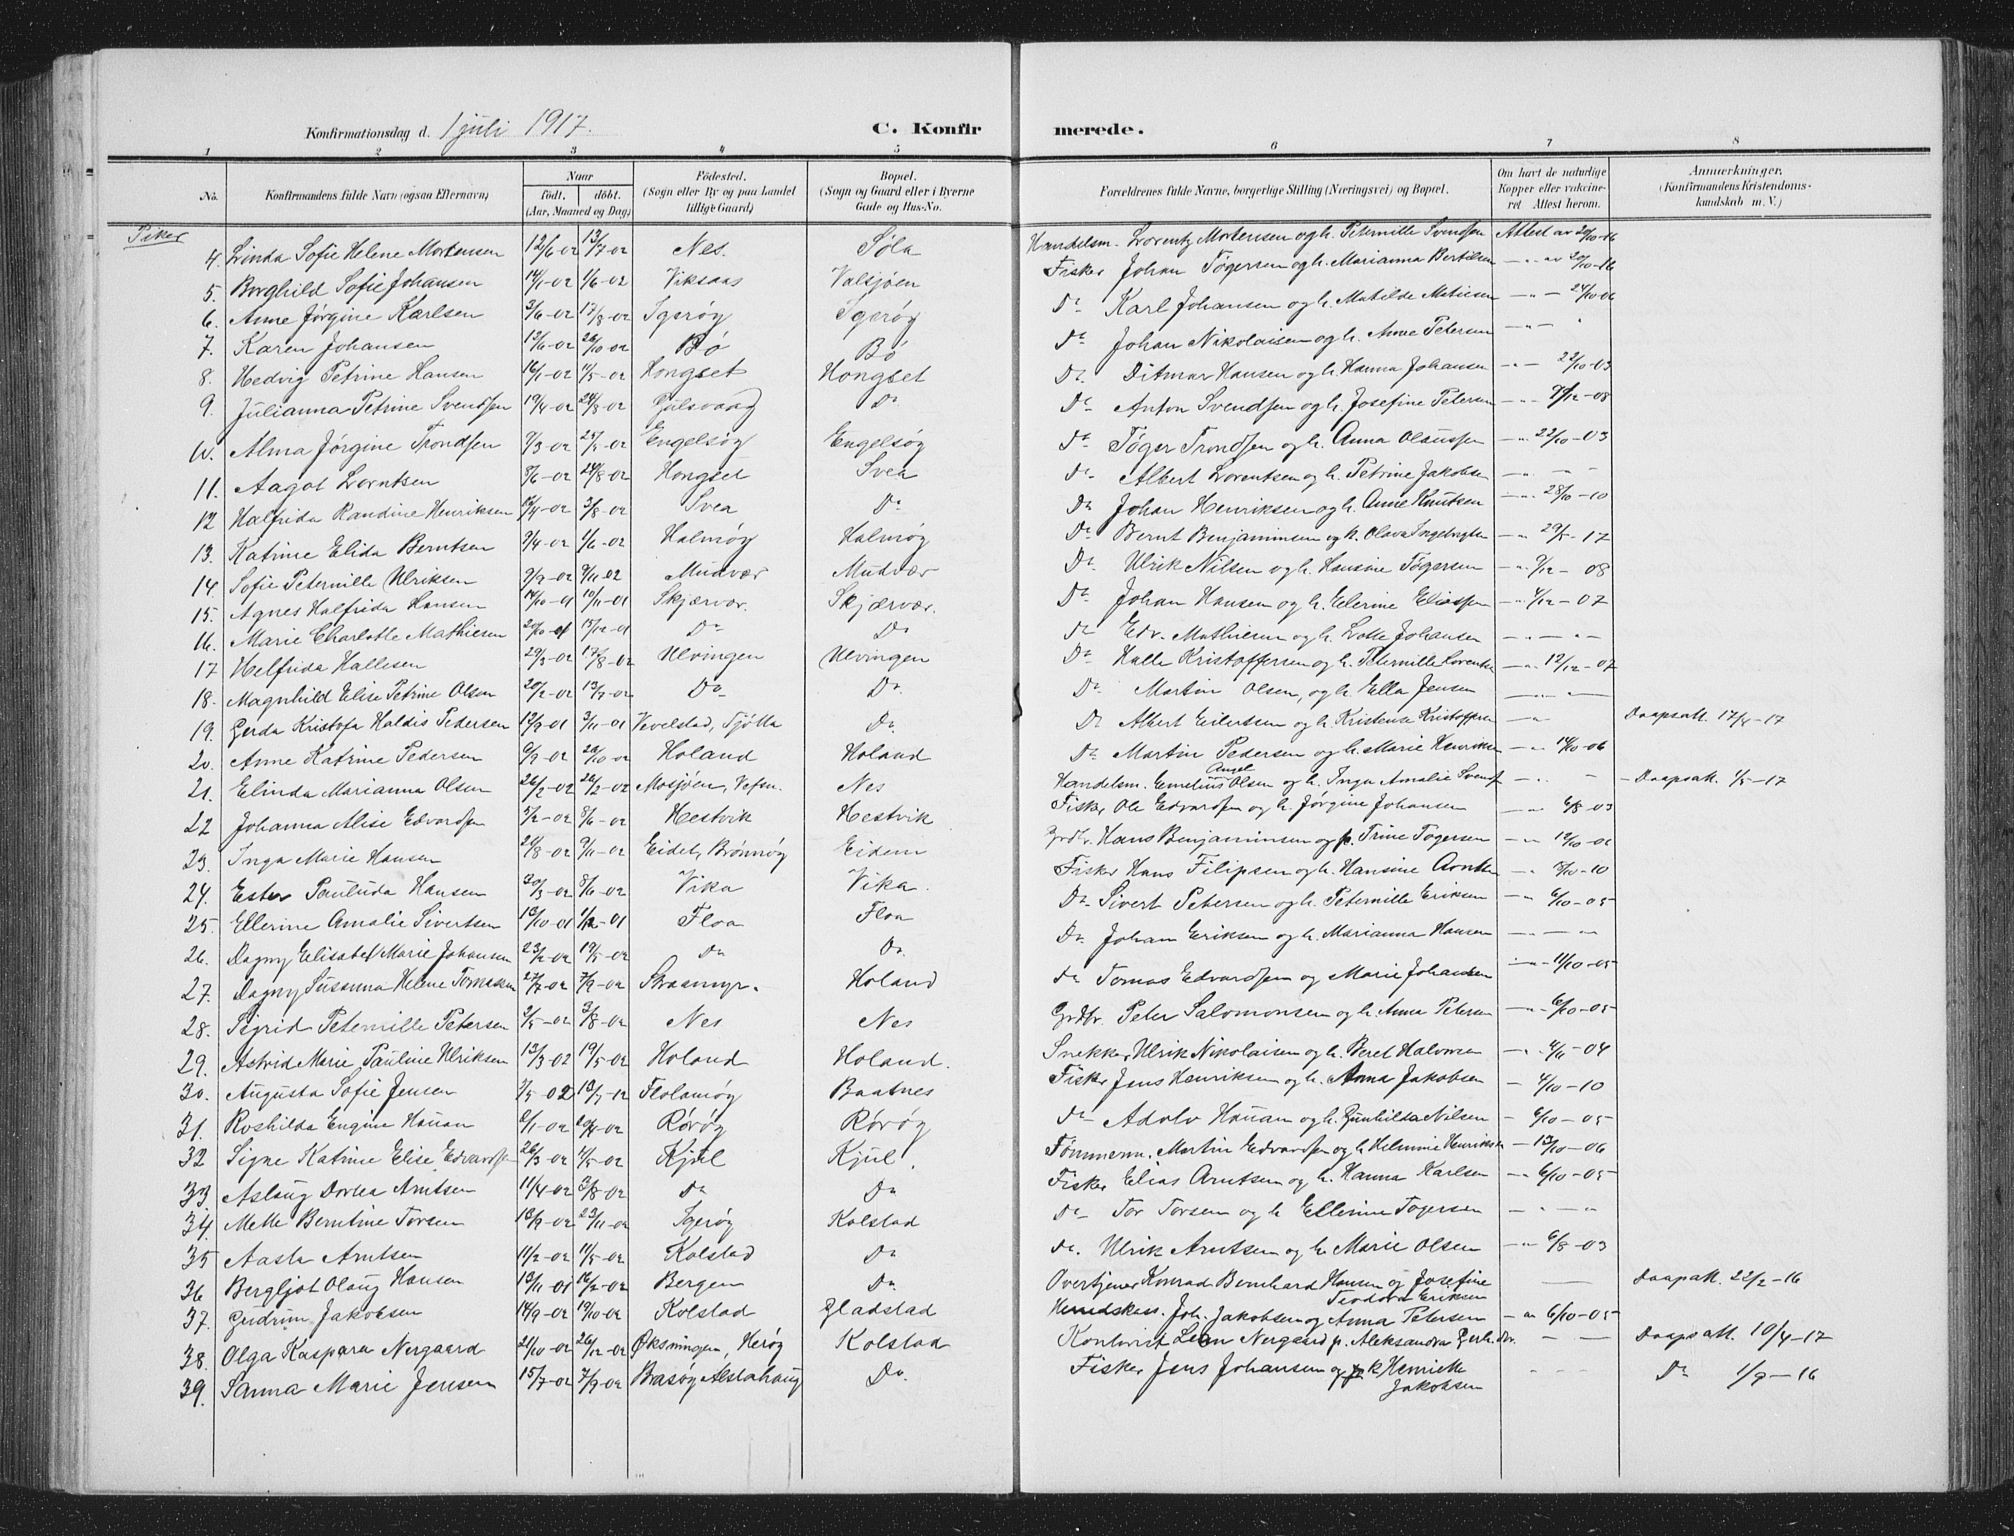 Konfirmationsdag d. 1 juli 1917. C. Konfirmerede.
1 2 3 4 5 6 7 8
No. Konfirmandens fulde Navn (ogsaa Efternavn) Naar født, døbt. (Aar, Maaned og Dag) Fødested. (Sogn eller By og paa Landet tillige Gaard) Bopæl. (Sogn og Gaard eller i Byerne Gade og Hus-No. Forældrenes fulde Navne, borgerlige Stilling (Næringsvei) og Bopæl. Om havt de naturlige Kopper eller vakcineret. Attest herom. Anmærkninger. (Konfirmandens Kristendomskundskab m. V.)
Piker
4. Linda Sofie Helene Mortensen 12/6-02 13/7-02 Nes. Søla Handelsm. Lorentz Mortensen og h. Peternille Svendsen Attest av 20/10-16
5. Borghild Sofie Johansen 14/1-02 1/6-02 Viksaas Valsjøen Fisker Johan Tøgersen og h. Marianna Bertilsen — " av 20/10-16
6. Anne Jørgine Karlsen 3/6-02 17/8-02 Igerøy Igerøy Do Karl Johansen og h. Matilde Matiesen — " — 24/10-06
7. Karen Johansen 13/6-02 26/10-02 Bø Bø Do Johan Nikolaisen og h. Anne Petersen — " — "
8. Hedvig Petrine Hansen 16/1-02 11/5-02 Hongset Hongset Do. Ditmar Hansen og h. Hanna Johansen — " — 22/10-03
9. Julianna Petrine Svendsen 19/4-02 24/8-02 Gulsvaag Do Do Anton Svendsen og h. Josefine Petersen — " 7/12-08
10. Alma Jørgine Trondsen 7/3-02 Engelsøy Engelsøy Do Tøger Trondsen og h. Anna Olsen — " 22/10-03
11. Aagot Lorntsen 8/6-02 24/8-02 Hongset Svea Do Albert Lorentsen og h. Petrine Jakobsen — " — "
12 Halfrida Randine Henriksen 3/8-02 Svea Do Do Johan Henriksen og h. Anne Knutsen — " 28/10-10
13. Katrine Elida Berntsen 9/4-02 1/6-02 Halmøy Halmøy Do Bernt Benjaminsen og h. Olava Ingebrigtsen — " 29/5-17
14. Sofie Peternille Ulriksen 9/9-02 9/11-02 Mudvær Mudvær Do Ulrik Nilsen og h. Hansine Tøgersen — " 9/12-08
15. Agnes Halfrida Hansen 14/10-01 10/11-01 Skjærvær. Skjærvær. Do Johan Hansen og h. Elerine Eliassen — " 4/12-07
16. Marie Charlotte Mathiesen 20/10-01 15/12-01 Do Do Do Edv. Mathiesen og h. Lotte Johansen — " — " —
17 Helfrida Hallesen 29/3-02 17/8-02 Ulvingen Ulvingen Do Halle Kristoffersen og h. Peternille Lorentsen — " 12/12-07
18. Magnhild Elise Petrine Olsen 20/2-02 13/7-02 Do Do. Do Martin Olsen, og h. Ella Jensen — " —
19. Gerda Kristofa Haldis Pedersen 12/9-01 3/11-01 Vevelstad, Tjøtta Do. Do Albert Eilertsen og h. Kristense Kristoffersen — " Daapsatt. 17/4-17
20. Anne Katrine Pedersen 9/9-02 20/10-02 Holand Holand Do Martin Pedersen og h. Marie Henriksen — " 14/10-06
21. Elinda Marianna Olsen 26/2-02 26/2-02 Mosjøen, Vefsn. Nes Handelsm. Emelius Angel Olsen og h. Inga Amalie Svends. — " — " — Daapsatt. 1/5-17
22 Johanna Alise Edvardsen 5/2-02 8/6-02 Hestvik Hestvik Fisker Ole Edvardsen og h. Jørgine Johansen — " 6/8-03
23. Inga Marie Hansen 20/8-02 9/11-02 Eidet, Brønnøy Eidem Grdbr. Hans Benjaminsen og p. Trine Tøgersen — " 12/10-06
24. Ester Paulida Hansen 30/3-02 8/6-02 Vika Vika. Fisker Hans Filipsen og h. Hansine Arntsen — " 8/10-10
25. Ellerine Amalie Sivertsen 13/10-01 1/12-01 Floa Floa Do. Sivert Petersen og h. Peternille Eriksen — " 6/10-05
26. Dagny Elisabet Marie Johansen 23/2-02 19/5-02 Do Do. Do. Johan Eriksen og h. Marianna Hansen — " — " —
27. Dagny Susanna Helene Tomassen 27/7-02 Straumyr. Holand Do Tomas Edvardsen og Marie Johansen — " 11/10-05
28. Sigrid Peternille Petersen 2/5-02 3/8-02 Nes Nes Grdbr. Peter Salomonsen og h. Anna Petersen — " 6/10-05
29. Astrid Marie Pauline Ulriksen 13/3-02 19/5-02 Holand Holand. Snekker Ulrik Nikolaisen og h. Beret Halvorsen — " 4/11-04
30. Augusta Sofie Jensen 2/5-02 13/7-12 Flolamøy Baatnes Fisker Jens Henriksen og h. Anna Jakobsen — 4/10-10
31. Roshilda Engine Hauan 2/1-02 20/4-02 Rørøy Rørøy Do Adolv Hauan og h. Gunhilda Nilsen — " 6/10-05
32 Signe Katrine Elise Edvardsen 26/3-02 11/5-02 Kjul Kjul. Tømmerm. Martin Edvardsen og h Helmine Henriksen — " 13/10-06
33. Aslaug Dortea Arntsen 11/4-02 3/8-02 Do Do Fisker Elias Arntsen og h. Hanna Karlsen — " 6/10-05
34. Mette Berntine Torsen 13/9-02 23/11-02 Igerøy Kolstad Do Tor Torsen og h Ellerine Tøgersen — " — "
35 Aasta Arntsen 11/2-02 11/5-02 Kolstad Do Do. Ulrik Arntsen og h. Marie Olsen — " 6/8-03
36 Bergljot Olaug Hansen 13/11-01 16/2-02 Bergen Do. Overtjener Konrad Bernhard Hansen og Josefine Teodora Eriksen — Daapatt. 22/2-16
37. Gudrun Jakobsen 14/9-02 19/10-02 Kolstad Gladstad Herredskass. Joh. Jakobsen og Anna Petersen — " 6/10-05
38. Olga Kaspara Nergaard 21/10-02 26/12-02 Øksningen, Herøy Kolstad Kontorist Leon Nergaard p. Aleksandra — — Daapsatt. 10/4-17
39. Sanna Marie Jensen 15/7-02 7/9-02 Brasøy Alstahaug Do. Fisker Jens Johansen og k Henriette Jakobsen - - - Do 1/9-16